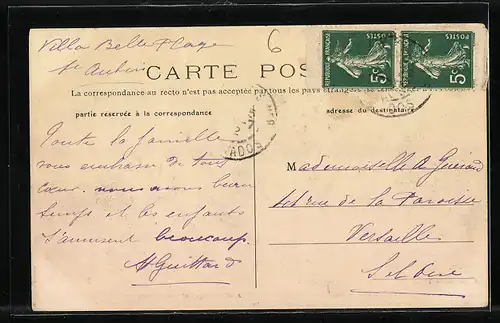 Villa Belle Plage
St Aubin
6
CARTE POS
RÉPUBLIQUE FRANÇAISE
POSTES
5c
RÉPUBLIQUE FRANÇAISE
POSTES
5c
La correspondance au recto n'est pas acceptée par tous les pays étrangers
partie réservée à la correspondance
adresse du destinataire
ADOS
ADOS
Toute la famille
vous embrasse de tout
cœur. nous avons beau
temps et les enfants
s'amusent beaucoup.
Guittard
Mademoiselle A Guérard
rue de la Paroisse
Versailles
S et Oise